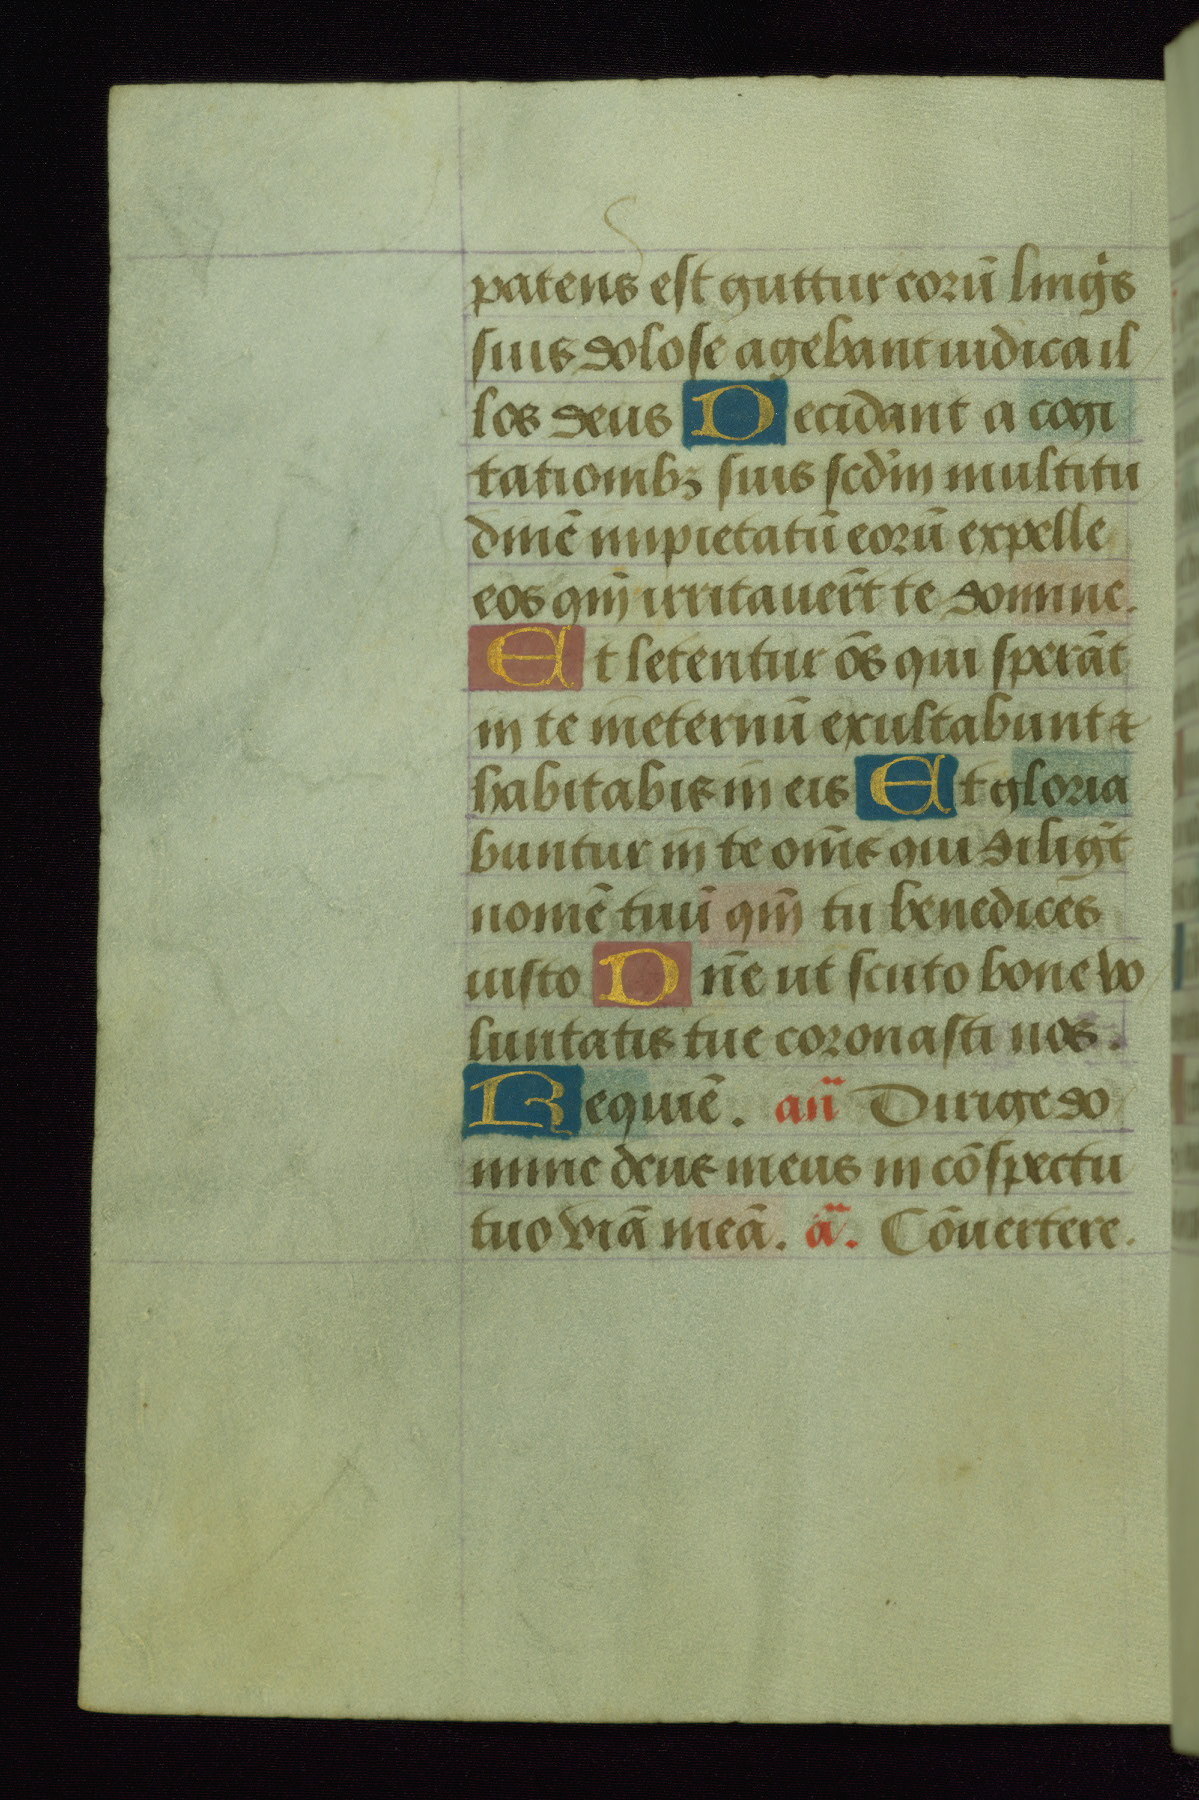 patens est guttur eorū linḡs
suis dolose agebant iudica il
los deus Decidant a cogi
tationibꝫ suis scd̄m multitu
dinē impietatū eorū expelle
eos qm̄ irritauer̄t te domine.
Et letentur ōs qui sperāt
in te ineternū exultabunt ⁊
habitabis in eis Et gloria
buntur in te om̄s qui diligt̄
nomē tuū qm̄ tu benedices
iusto Dn̄e ut scuto bone vo
luntatis tue coronasti nos.
Requiē. an̄ Dirige do
mine deus meus in cōspectu
tuo viā meā. ā. Cōuertere.